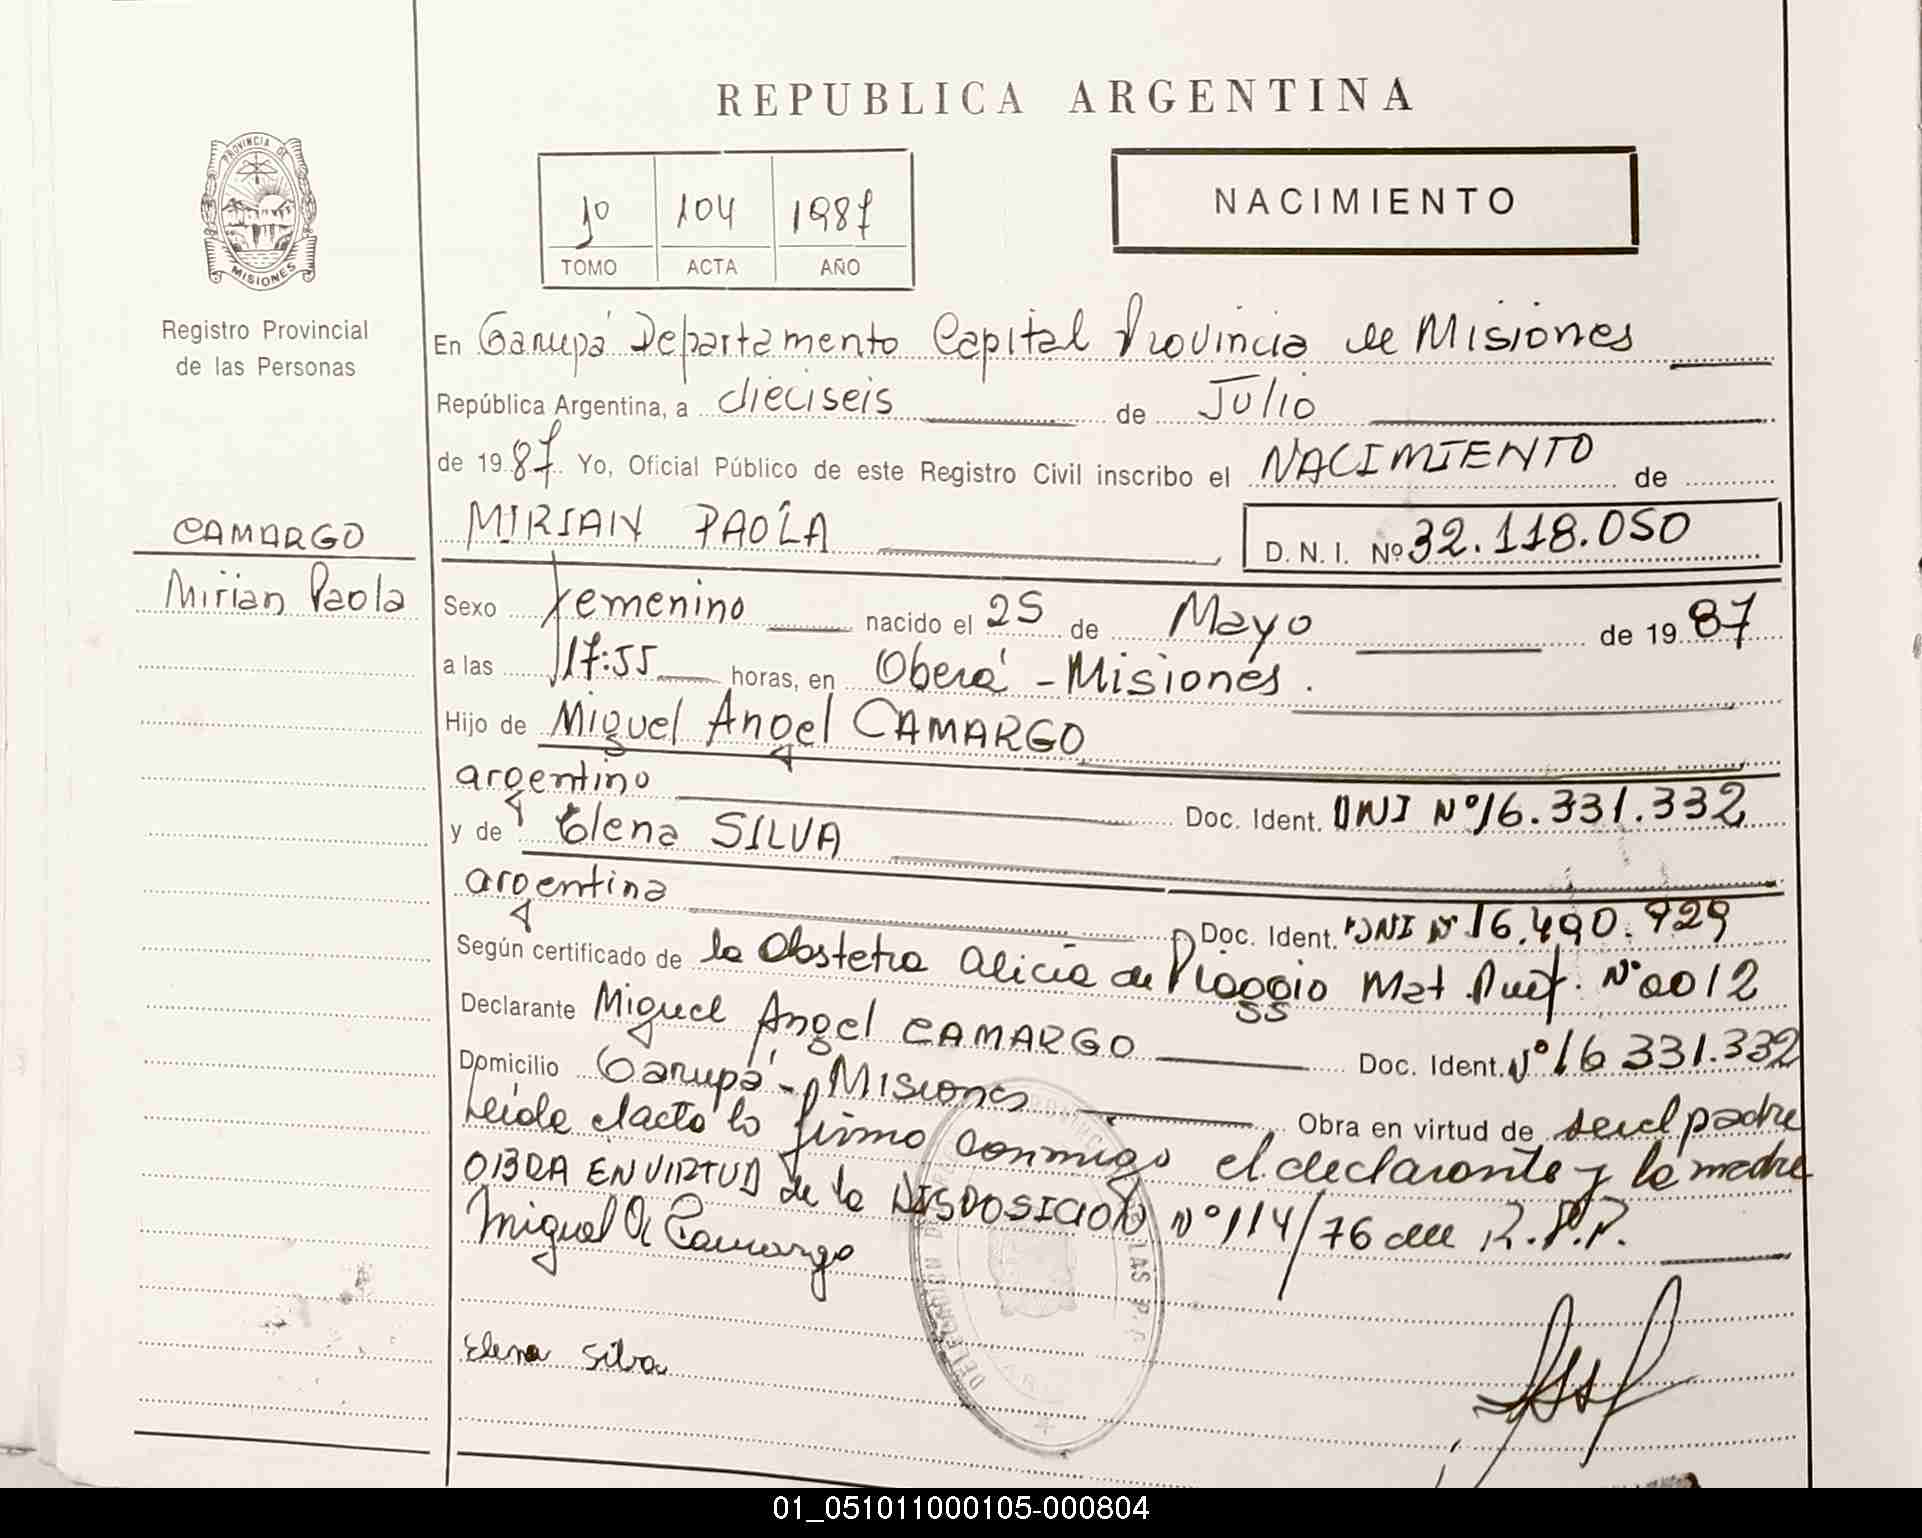 REPUBLICA ARGENTINA
PROVINCIA DE
MISIONES
Registro Provincial
de las Personas
1º 104 1987
TOMO ACTA AÑO
NACIMIENTO
En Garupá Departamento Capital Provincia de Misiones
República Argentina, a dieciseis de Julio
de 1987 Yo, Oficial Público de este Registro Civil inscribo el NACIMIENTO de
CAMARGO
Mirian Paola
MIRIAN PAOLA D. N. I. Nº 32.118.050
Sexo femenino nacido el 25 de Mayo de 1987
a las 17:55 horas, en Oberá - Misiones.
Hijo de Miguel Angel CAMARGO
argentino Doc. Ident. DNI Nº 16.331.332
y de Elena SILVA
argentina Doc. Ident. DNI Nº 16.490.929
Según certificado de la Obstetra Alicia de Pioggio Mat. Nº 0012
Declarante Miguel Angel CAMARGO Doc. Ident. Nº 16 331.332
Domicilio Garupá - Misiones Obra en virtud de ser el padre
Leida el acta lo firmo conmigo el declarante y la madre
OBRA EN VIRTUD de la DISPOSICION Nº 114/76 del R.P.P.
Miguel A Camargo
Elena Silva
01_051011000105-000804